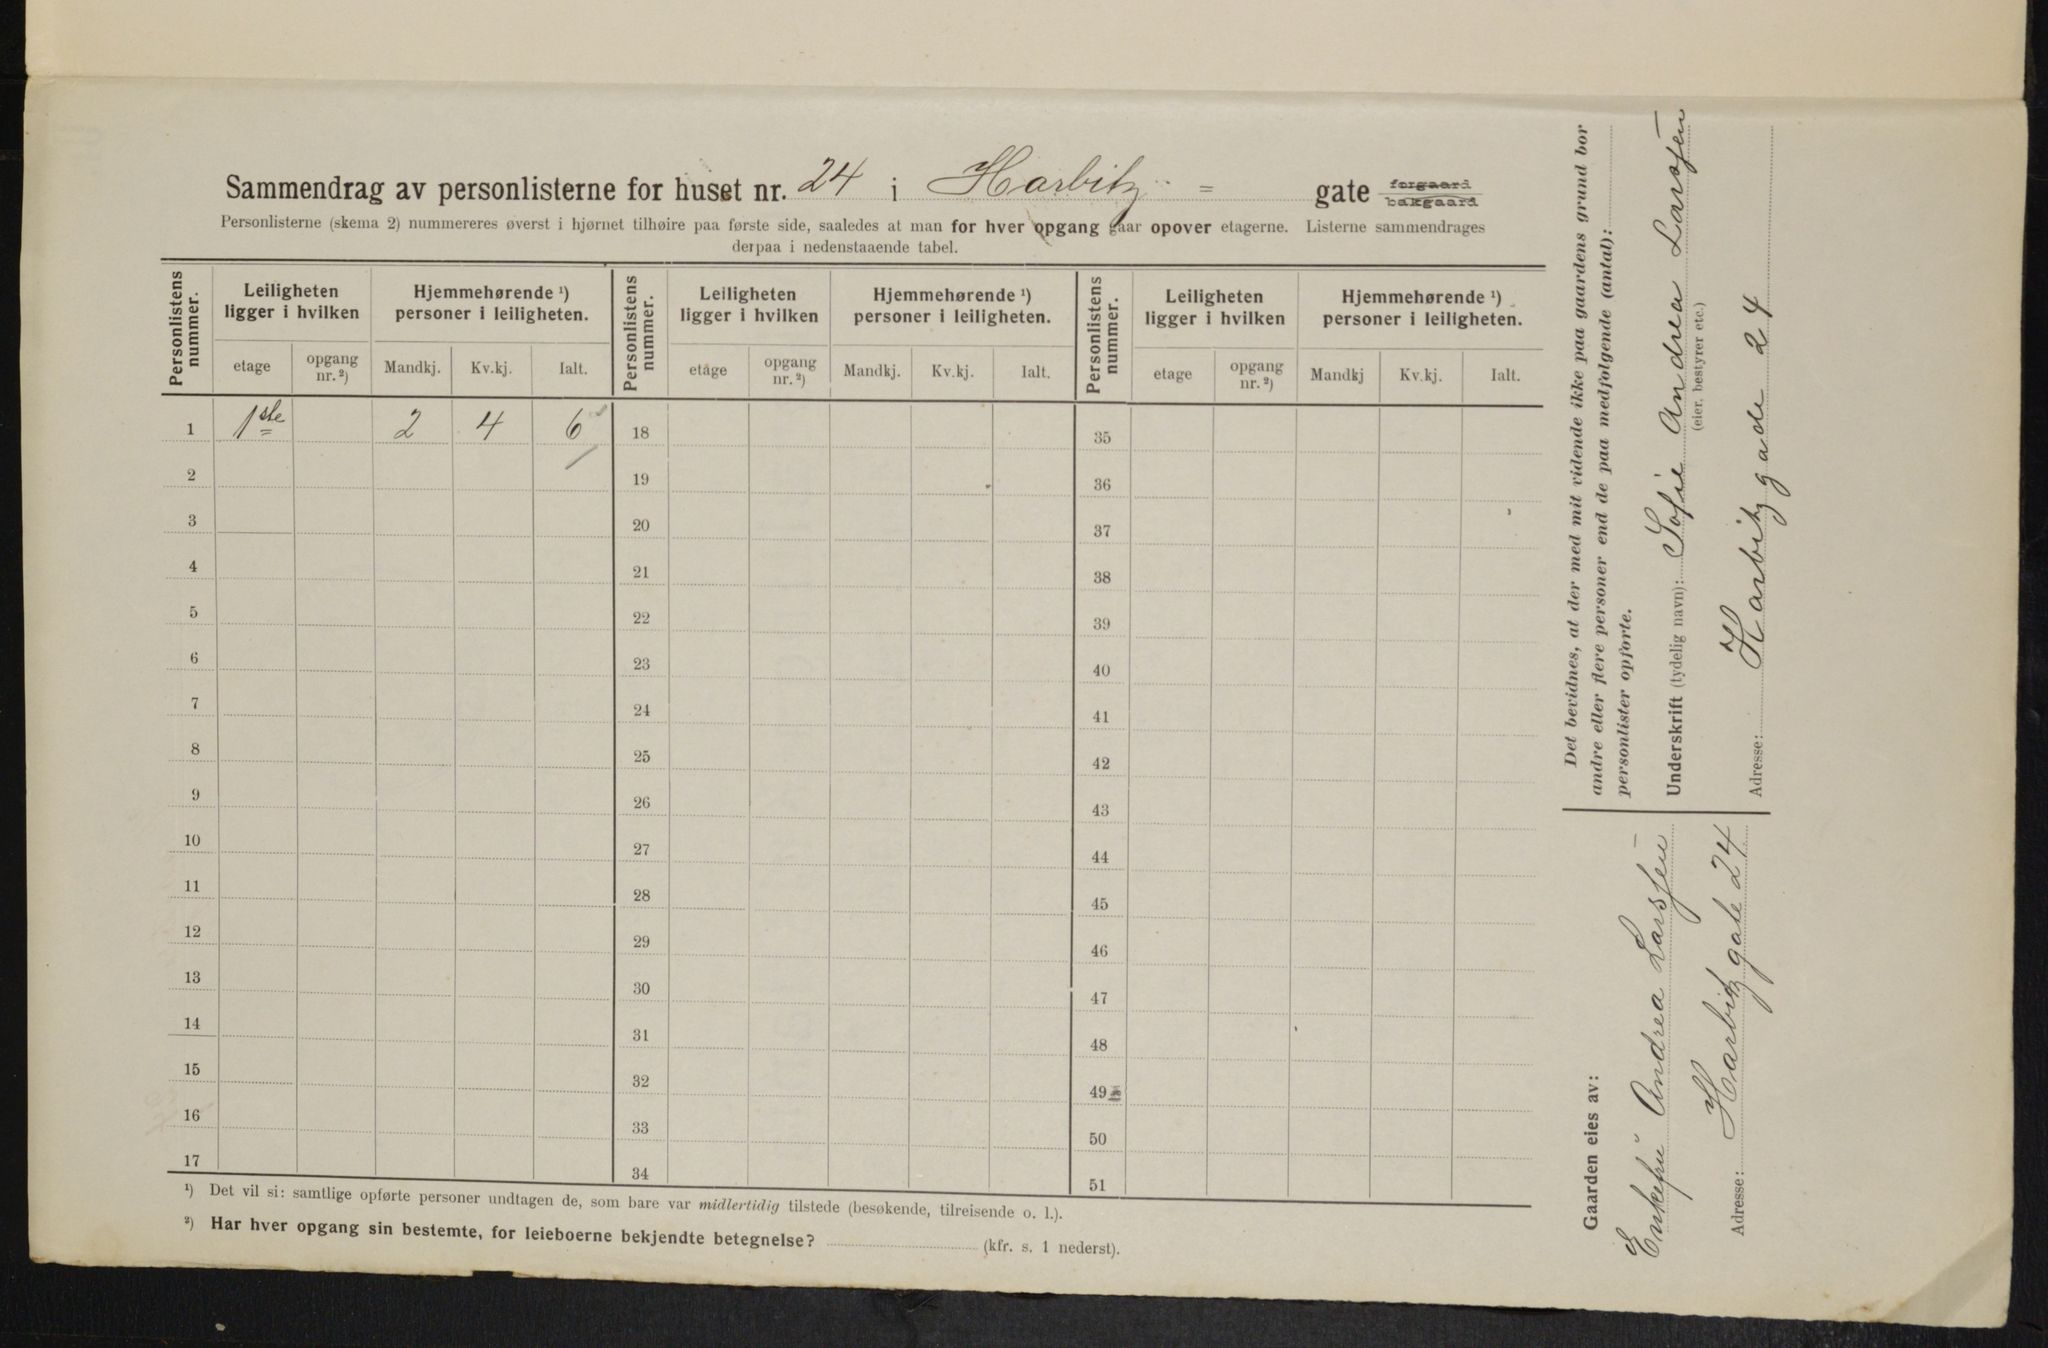 Sammendrag av personlisterne for huset nr. 24 i Harbitz = gate forgaard bakgaard
Personlisterne (skema 2) nummereres øverst i hjørnet tilhøire paa første side, saaledes at man for hver opgang gaar opover etagerne. Listerne sammendrages
derpaa i nedenstaaende tabel.
Personlistens nummer. Leiligheten ligger i hvilken Hjemmehørende ¹) personer i leiligheten. Personlistens nummer. Leiligheten ligger i hvilken Hjemmehørende ¹) personer i leiligheten. Personlistens nummer. Leiligheten ligger i hvilken Hjemmehørende ¹) personer i leiligheten.
etage opgang nr. ²) Mandkj. Kv.kj. Ialt. etage opgang nr. ²) Mandkj. Kv.kj. Ialt. etage opgang nr. ²) Mandkj Kv.kj. Ialt.
1 1ste 2 4 6 18 35
2 19 36
3 20 37
4 21 38
5 22 39
6 23 40
7 24 41
8 25 42
9 26 43
10 27 44
11 28 45
12 29 46
13 30 47
14 31 48
15 32 49
16 33 50
17 34 51
¹) Det vil si: samtlige opførte personer undtagen de, som bare var midlertidig tilstede (besøkende, tilreisende o. l.).
²) Har hver opgang sin bestemte, for leieboerne bekjendte betegnelse? (kfr. s. 1 nederst).
Det bevidnes, at der med mit vidende ikke paa gaardens grund bor
andre eller flere personer end de paa medfølgende (antal):
personlister opførte.
Underskrift (tydelig navn): Sofie Andrea Larssen
(eier, bestyrer etc.)
Adresse: Harbitzgade 24
Gaarden eies av:
Enkefru Andrea Larssen
Adresse: Harbitzgate 24